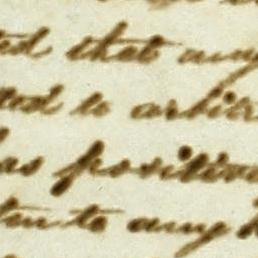 ted that any
tted to arbitr
has positive
ten to any